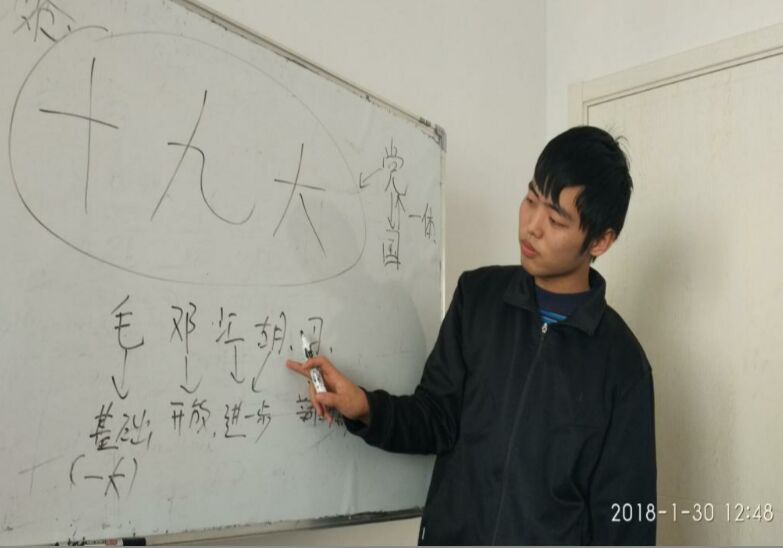 十九大
党
一体
国
毛 邓 江 胡 习
基础 开放 进步
(一大)
2018-1-30 12:48